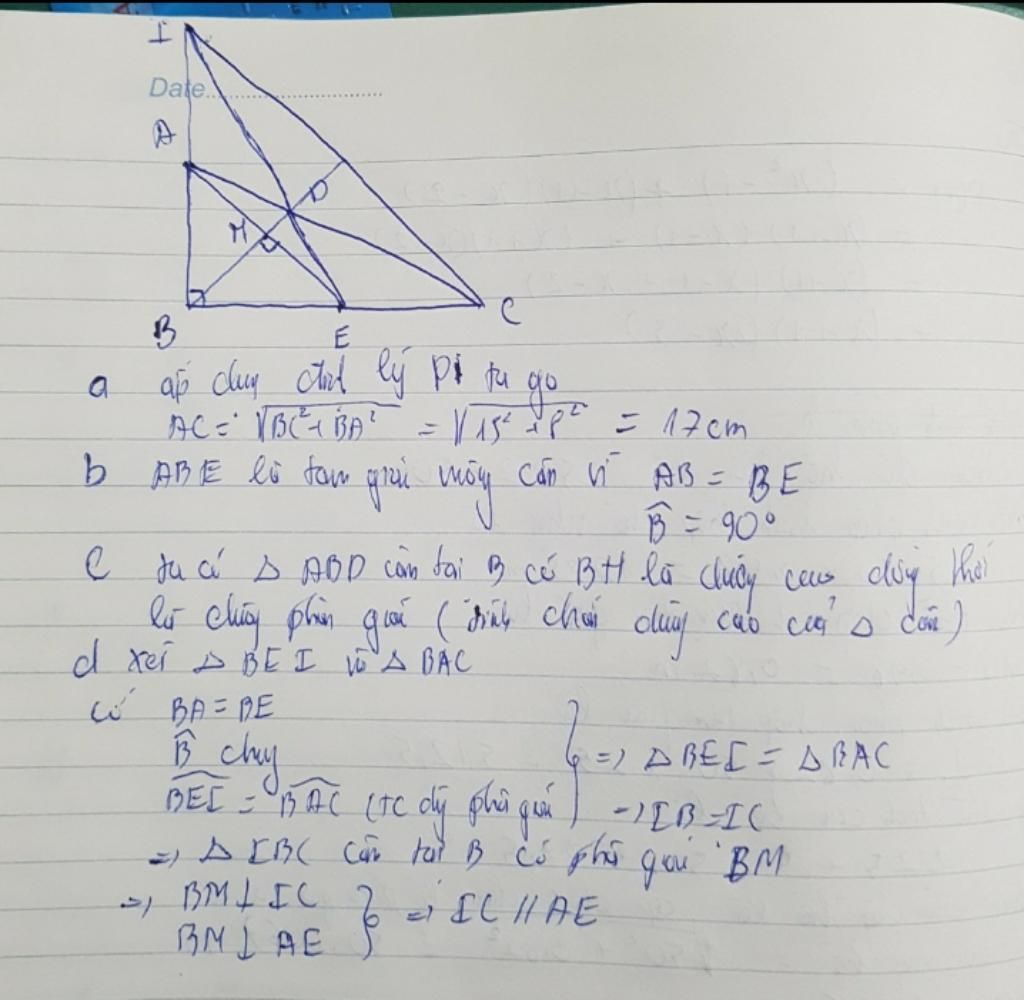 I
Date
A
D
M
B
E
C
a áp dụng định lý Pi ta go
AC = √BC² + BA² = √15² + 8² = 17cm
b ABE là tam giác vuông cân vì AB = BE
B̂ = 90°
C ta có △ ABD cân tại B có BH là đường cao đồng thời
là đường phân giác (tính chất đường cao của △ cân)
d xét △ BEI và △ BAC
có BA = BE
B̂ chung
BEI = BAC (tc đg phân giác) => △ BEI = △ BAC
=> IB = IC
=> △ IBC cân tại B có phân giác BM
=> BM ⊥ IC
BM ⊥ AE => IC // AE